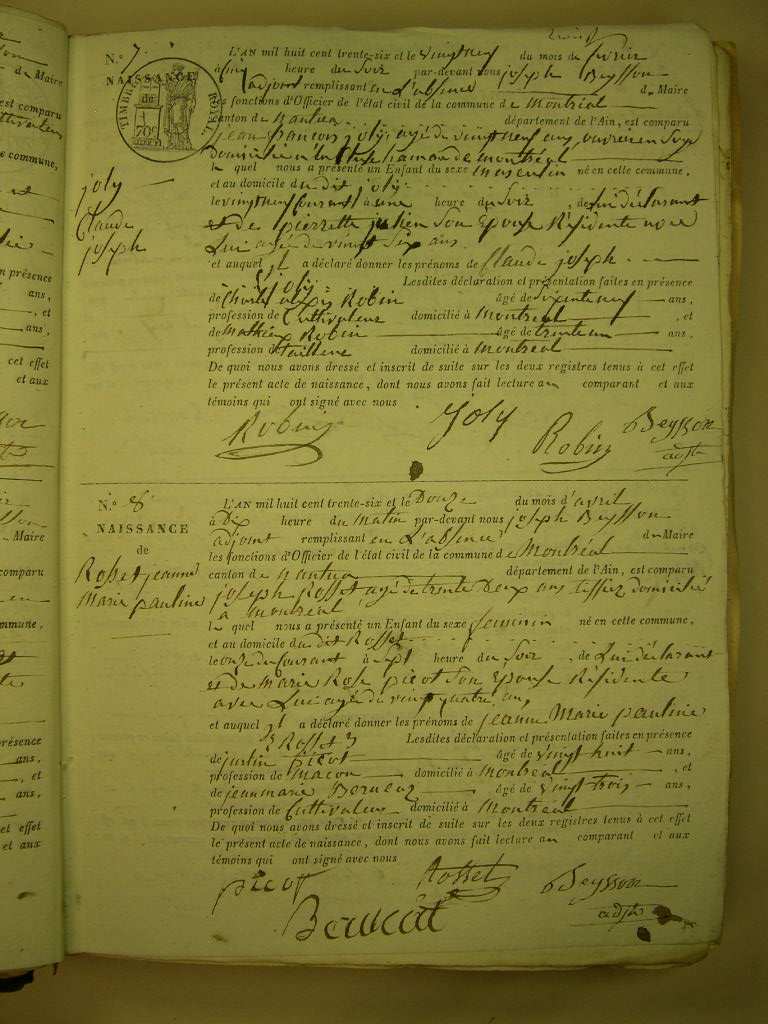 N.° 7.
NAISSANCE
TIMBRE ROYAL
de
70c
joly
Claude
joseph
L'AN mil huit cent trente-six et le vingt neuf du mois de fevrier
à cinq heure du Soir par-devant nous joseph Beysson
adjoint remplissant en L'absence du Maire
les fonctions d'Officier de l'état civil de la commune de Montréal
canton de Nantua département de l'Ain, est comparu
jean francois joly agé de vingt neuf ans, ouvrier en Soye
domicilié à hamau de montréal
le quel nous a présenté un Enfant du sexe masculin né en cette commune,
et au domicile du dit joly
le vingt neuf Courant à une heure du Soir, de Lui déclarant
et de pierrette julien Son Epouse Résidente avec
Lui agée de vingt Six ans.
et auquel il a déclaré donner les prénoms de Claude joseph
Joly. Lesdites déclaration et présentation faites en présence
de Robin âgé de neuf ans,
profession de Cultivateur domicilié à Montréal, et
de Mathieu Robin âgé de trente un ans,
profession de tailleur domicilié à Montréal
De quoi nous avons dressé et inscrit de suite sur les deux registres tenus à cet effet
le présent acte de naissance, dont nous avons fait lecture au comparant et aux
témoins qui ont signé avec nous
Robin Joly Robin Beysson
adjt
N.° 8
NAISSANCE
de
Rosset jeanne
Marie pauline
L'AN mil huit cent trente-six et le Douze du mois d'avril
à Dix heure du Matin par-devant nous joseph Beysson
adjoint remplissant en L'absence du Maire
les fonctions d'Officier de l'état civil de la commune de Montréal
canton de Nantua département de l'Ain, est comparu
joseph Rosset agé de trente Deux ans tissier domicilié
à Montréal
le quel nous a présenté un Enfant du sexe feminin né en cette commune,
et au domicile du dit Rosset
le onze du Courant à Sept heure du Soir, de Lui déclarant
et de Marie Rose picot Son Epouse Résidente
avec Lui agé de vingt quatre ans
et auquel il a déclaré donner les prénoms de jeanne Marie pauline
Rosset Lesdites déclaration et présentation faites en présence
de justin picot âgé de vingt huit ans,
profession de Macon domicilié à Montréal, et
de jean marie âgé de vingt trois ans,
profession de Cultivateur domicilié à Montréal
De quoi nous avons dressé et inscrit de suite sur les deux registres tenus à cet effet
le présent acte de naissance, dont nous avons fait lecture au comparant et aux
témoins qui ont signé avec nous
picot Rosset Beysson
adjt